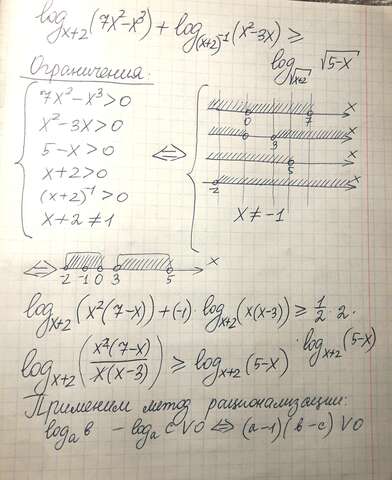 log_{x+2}(7x²-x³) + log_{(x+2)^{-1}}(x²-3x) ≥
log_{√x+2} √5-x
Ограничения:
7x²-x³>0
x²-3x>0
5-x>0
x+2>0
(x+2)^{-1}>0
x+2≠1
⇔
0 7 x
0 3 x
5 x
-2 x
x≠-1
⇔ -2 -1 0 3 5 x
log_{x+2}(x²(7-x)) + (-1)·log_{x+2}(x(x-3)) ≥ 1/2·2·
·log_{x+2}(5-x)
log_{x+2}(x²(7-x)/x(x-3)) ≥ log_{x+2}(5-x)
Применим метод рационализации:
log_a b - log_a c V 0 ⇔ (a-1)(b-c) V 0